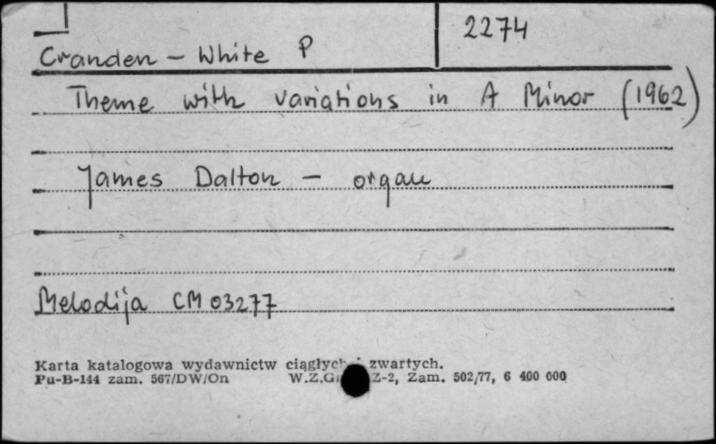 2274
Cranden - White P
Theme with variations in A Minor (1962)
James Dalton - organ
Melodija CM 03277
Karta katalogowa wydawnictw ciągłych i zwartych.
Pu-B-144 zam. 567/DW/On W.Z.Gr. Z-2, Zam. 502/77, 6 400 000